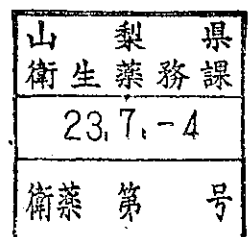 山梨県
衛生薬務課
23.7.-4
衛薬第 号